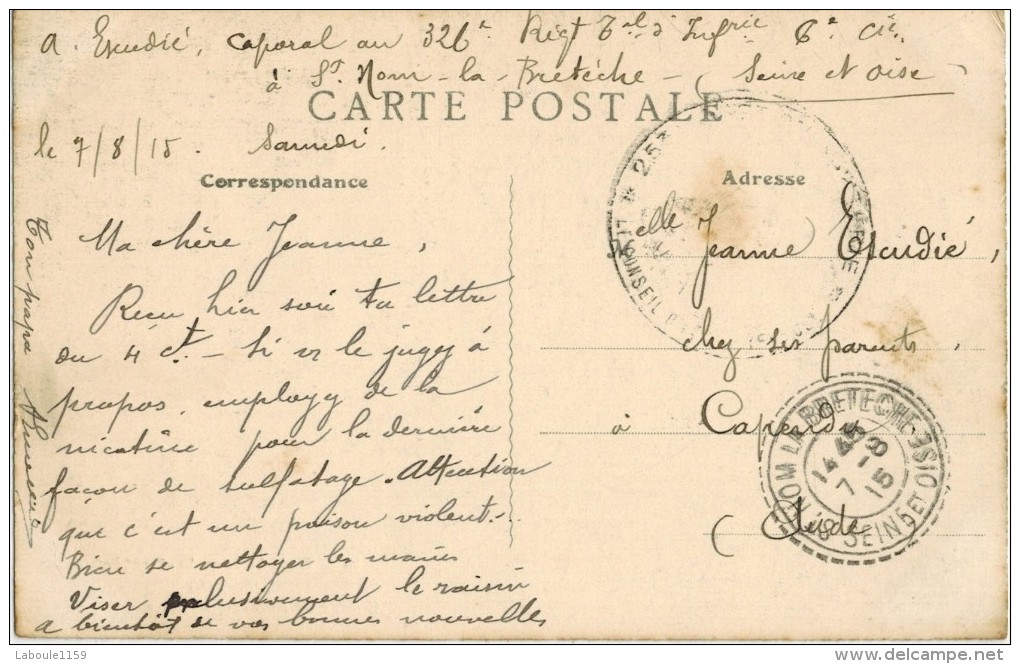 A. Escudié, caporal au 326e Régt Tal d'Infrie 6e Cie
à St Nom-la-Bretèche - (Seine et Oise
CARTE POSTALE
le 7/8/15. Samedi.
Correspondance
Ma chère Jeanne,
Reçu hier soir ta lettre
du 4 ct. - Si vs le jugez à
propos, employez de la
nicotine pour la dernière
façon de sulfatage. Attention
que c'est un poison violent...
Bien se nettoyer les mains
Viser exclusivement le raisin
a bientôt de vos bonnes nouvelles
Ton papa
Adresse
Melle Jeanne Escudié,
chez ses parents,
à Capendu
(Aude
* 25
CONSEIL D'
NOM LA BRETECHE
14 45
7 - 8
15
SEINE ET OISE
Laboule1159